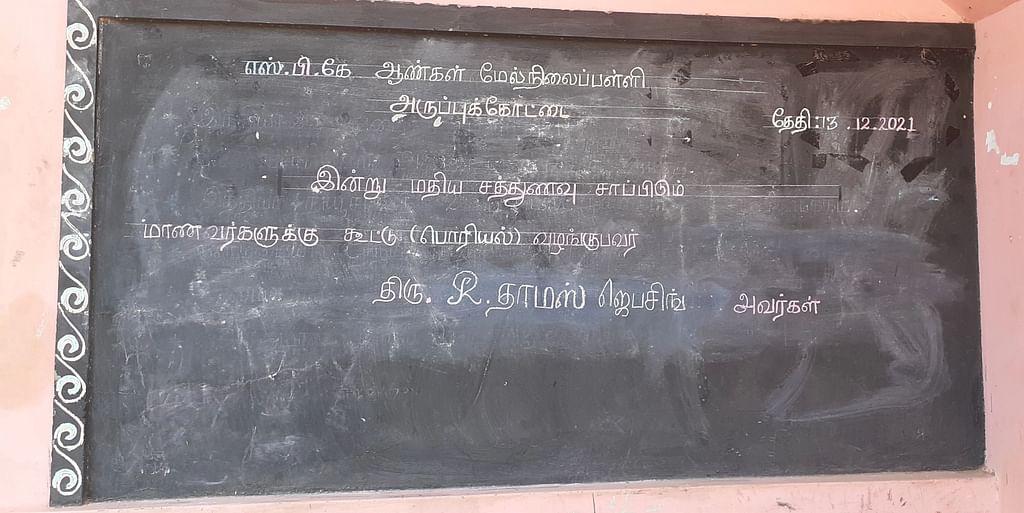 எஸ்.பி.கே ஆண்கள் மேல்நிலைப்பள்ளி
அருப்புக்கோட்டை
தேதி:13.12.2021
இன்று மதிய சத்துணவு சாப்பிடும்
மாணவர்களுக்கு கூட்டு (பொரியல்) வழங்குபவர்
திரு. R. தாமஸ் ஜெபசிங் அவர்கள்